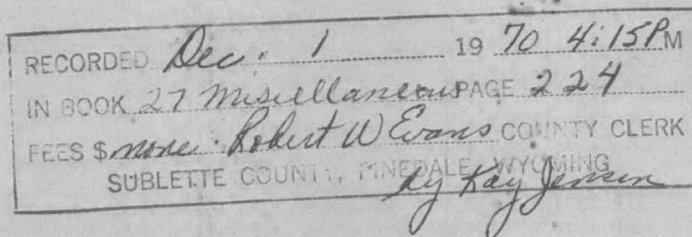 RECORDED Dec. 1 1970 4:15PM
IN BOOK 27 Miscellaneous PAGE 224
FEES $ none. Robert W Evans COUNTY CLERK
SUBLETTE COUNTY, PINEDALE, WYOMING
by Kay Jensen